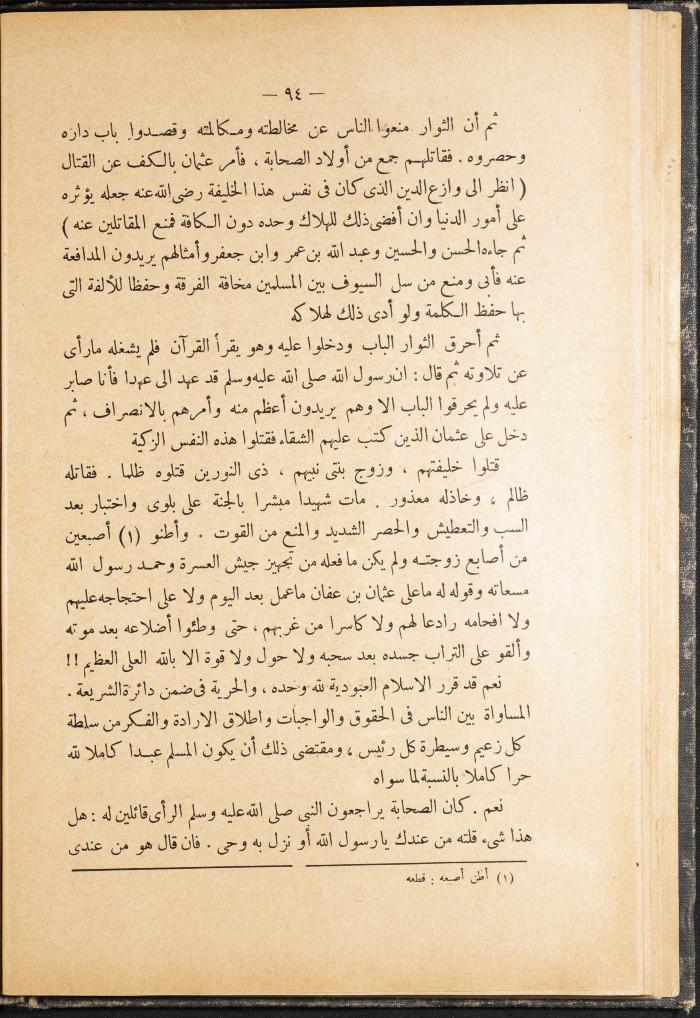 — ٩٤ —
ثم أن الثوار منعوا الناس عن مخالطته ومكالمته وقصدوا باب داره
وحصروه . فقاتلهم جمع من أولاد الصحابة ، فأمر عثمان بالكف عن القتال
( انظر الى وازع الدين الذى كان فى نفس هذا الخليفة رضى الله عنه جعله يؤثره
على أمور الدنيا وان أفضى ذلك للهلاك وحده دون الكافة فمنع المقاتلين عنه )
ثم جاءه الحسن والحسين وعبد الله بن عمر وابن جعفر وأمثالهم يريدون المدافعة
عنه فأبى ومنع من سل السيوف بين المسلمين مخافة الفرقة وحفظا للألفة التى
بها حفظ الكلمة ولو أدى ذلك لهلاكه
ثم أحرق الثوار الباب ودخلوا عليه وهو يقرأ القرآن فلم يشغله مارأى
عن تلاوته ثم قال : ان رسول الله صلى الله عليه وسلم قد عهد الى عهدا فأنا صابر
عليه ولم يحرقوا الباب الا وهم يريدون أعظم منه وأمرهم بالانصراف ، ثم
دخل على عثمان الذين كتب عليهم الشقاء فقتلوا هذه النفس الزكية
قتلوا خليفتهم ، وزوج بنتى نبيهم ، ذى النورين قتلوه ظلما . فقاتله
ظالم ، وخاذله معذور . مات شهيدا مبشرا بالجنة على بلوى واختبار بعد
السب والتعطيش والحصر الشديد والمنع من القوت . وأطنو (١) أصبعين
من أصابع زوجته ولم يكن مافعله من تجهيز جيش العسرة وحمد رسول الله
مسعاته وقوله له ماعلى عثمان بن عفان ماعمل بعد اليوم ولا على احتجاجه عليهم
ولا افحامه رادعا لهم ولا كاسرا من غربهم ، حتى وطئوا أضلاعه بعد موته
وألقو على التراب جسده بعد سحبه ولا حول ولا قوة الا بالله العلى العظيم !!
نعم قد قرر الاسلام العبودية لله وحده ، والحرية فى ضمن دائرة الشريعة .
المساواة بين الناس فى الحقوق والواجبات واطلاق الارادة والفكر من سلطة
كل زعيم وسيطرة كل رئيس ، ومقتضى ذلك أن يكون المسلم عبدا كاملا لله
حرا كاملا بالنسبة لما سواه
نعم . كان الصحابة يراجعون النبى صلى الله عليه وسلم الرأى قائلين له : هل
هذا شىء قلته من عندك يارسول الله أو نزل به وحى . فان قال هو من عندى
(١) أطن أصبعه : قطعه